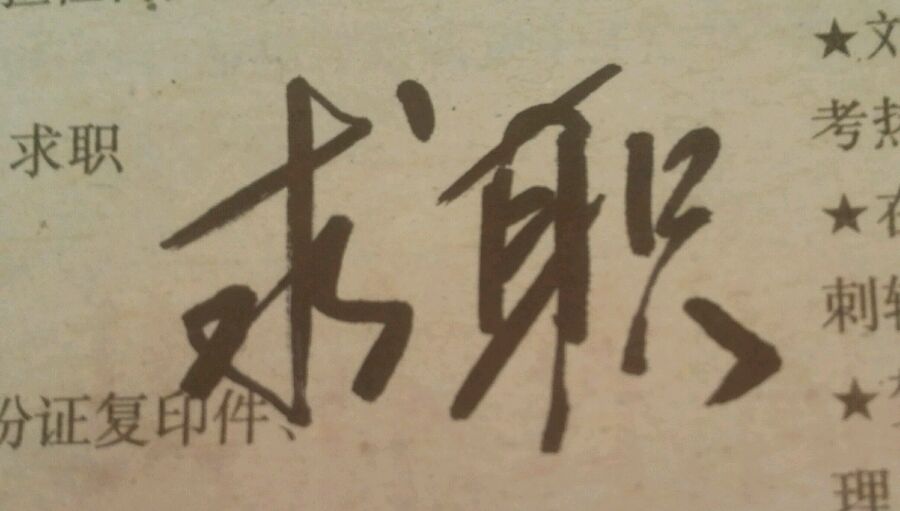 ★文
求职
求职
考热
★在
刺
份证复印件、
★
理